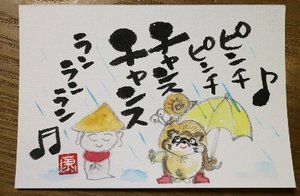 ピンチ
ピンチ
チャンス
チャンス
ラン
ランラン